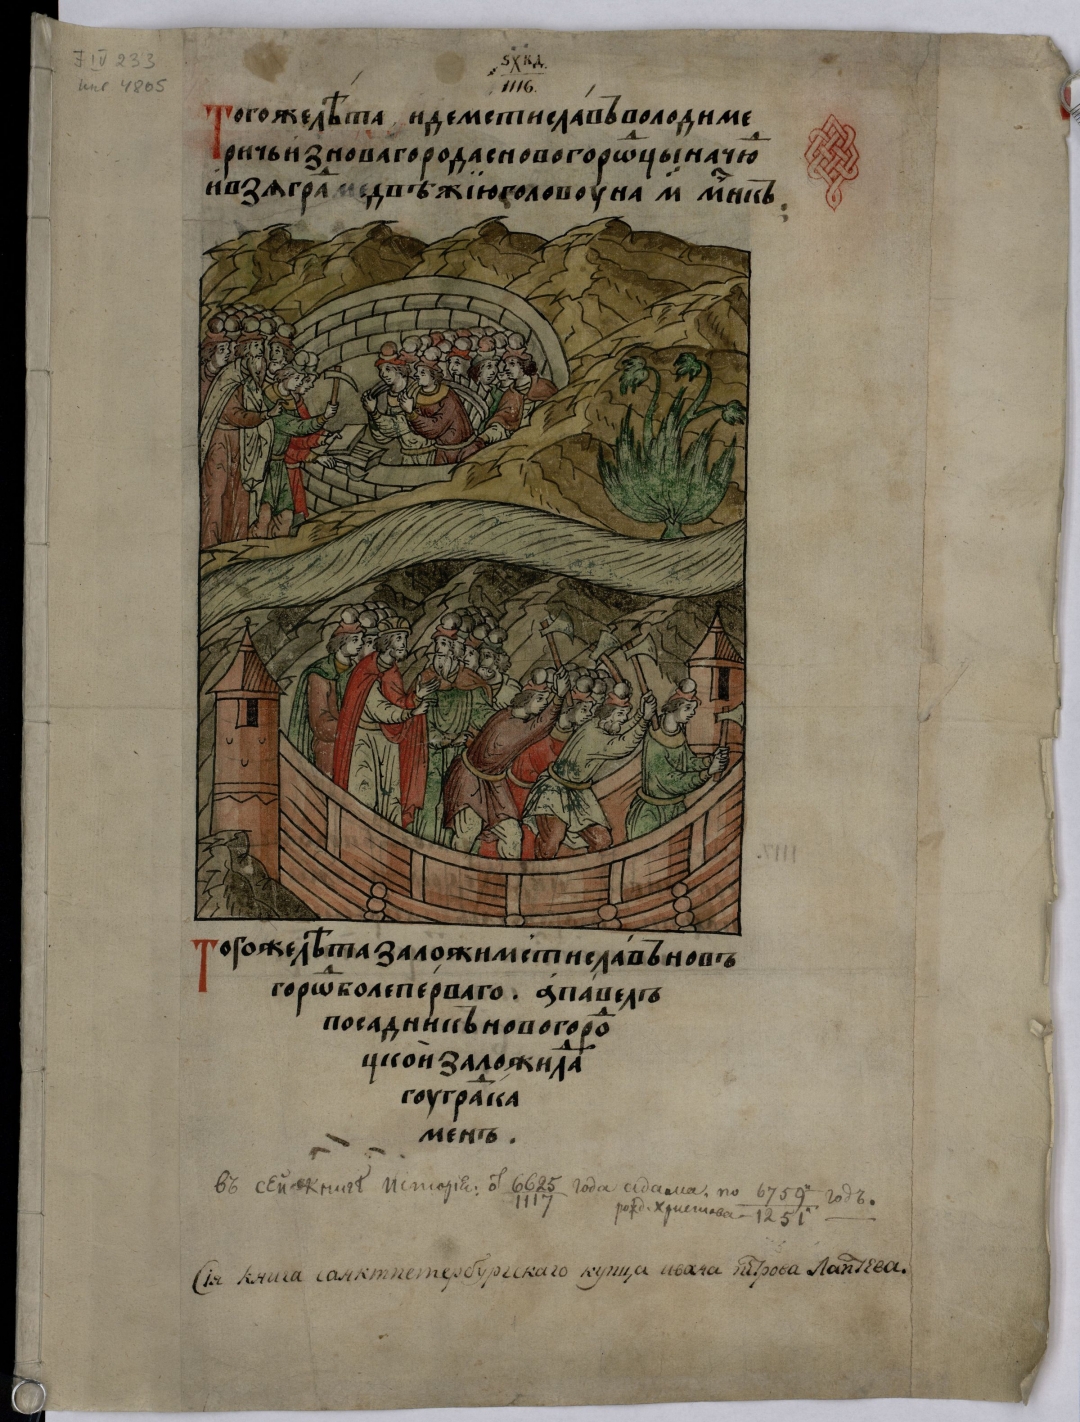 F IV 233
инв 4805
҂ѕхкд.
1116.
Тогожелѣта идемстиславъволодиме
ричьизновагородасновогорѡⷣцыначюⷣ
ивзѧграⷣмедвѣжїюголовоуна м҃ мч҃нкъ
Тогожелѣтазаложимстиславъновъ
горѡⷣболеперваго. апавелъ
посадникъновогороⷣ
цкойзаложилаⷣ
гоуграⷣка
менъ.
1117.
въ сей книгѣ Исторіи: ѿ 6625 года адама, по 6759й годъ.
1117 рожд. христова 1251й
Сія книга санктпетербургскаго купца ивана петрова Лаптева.